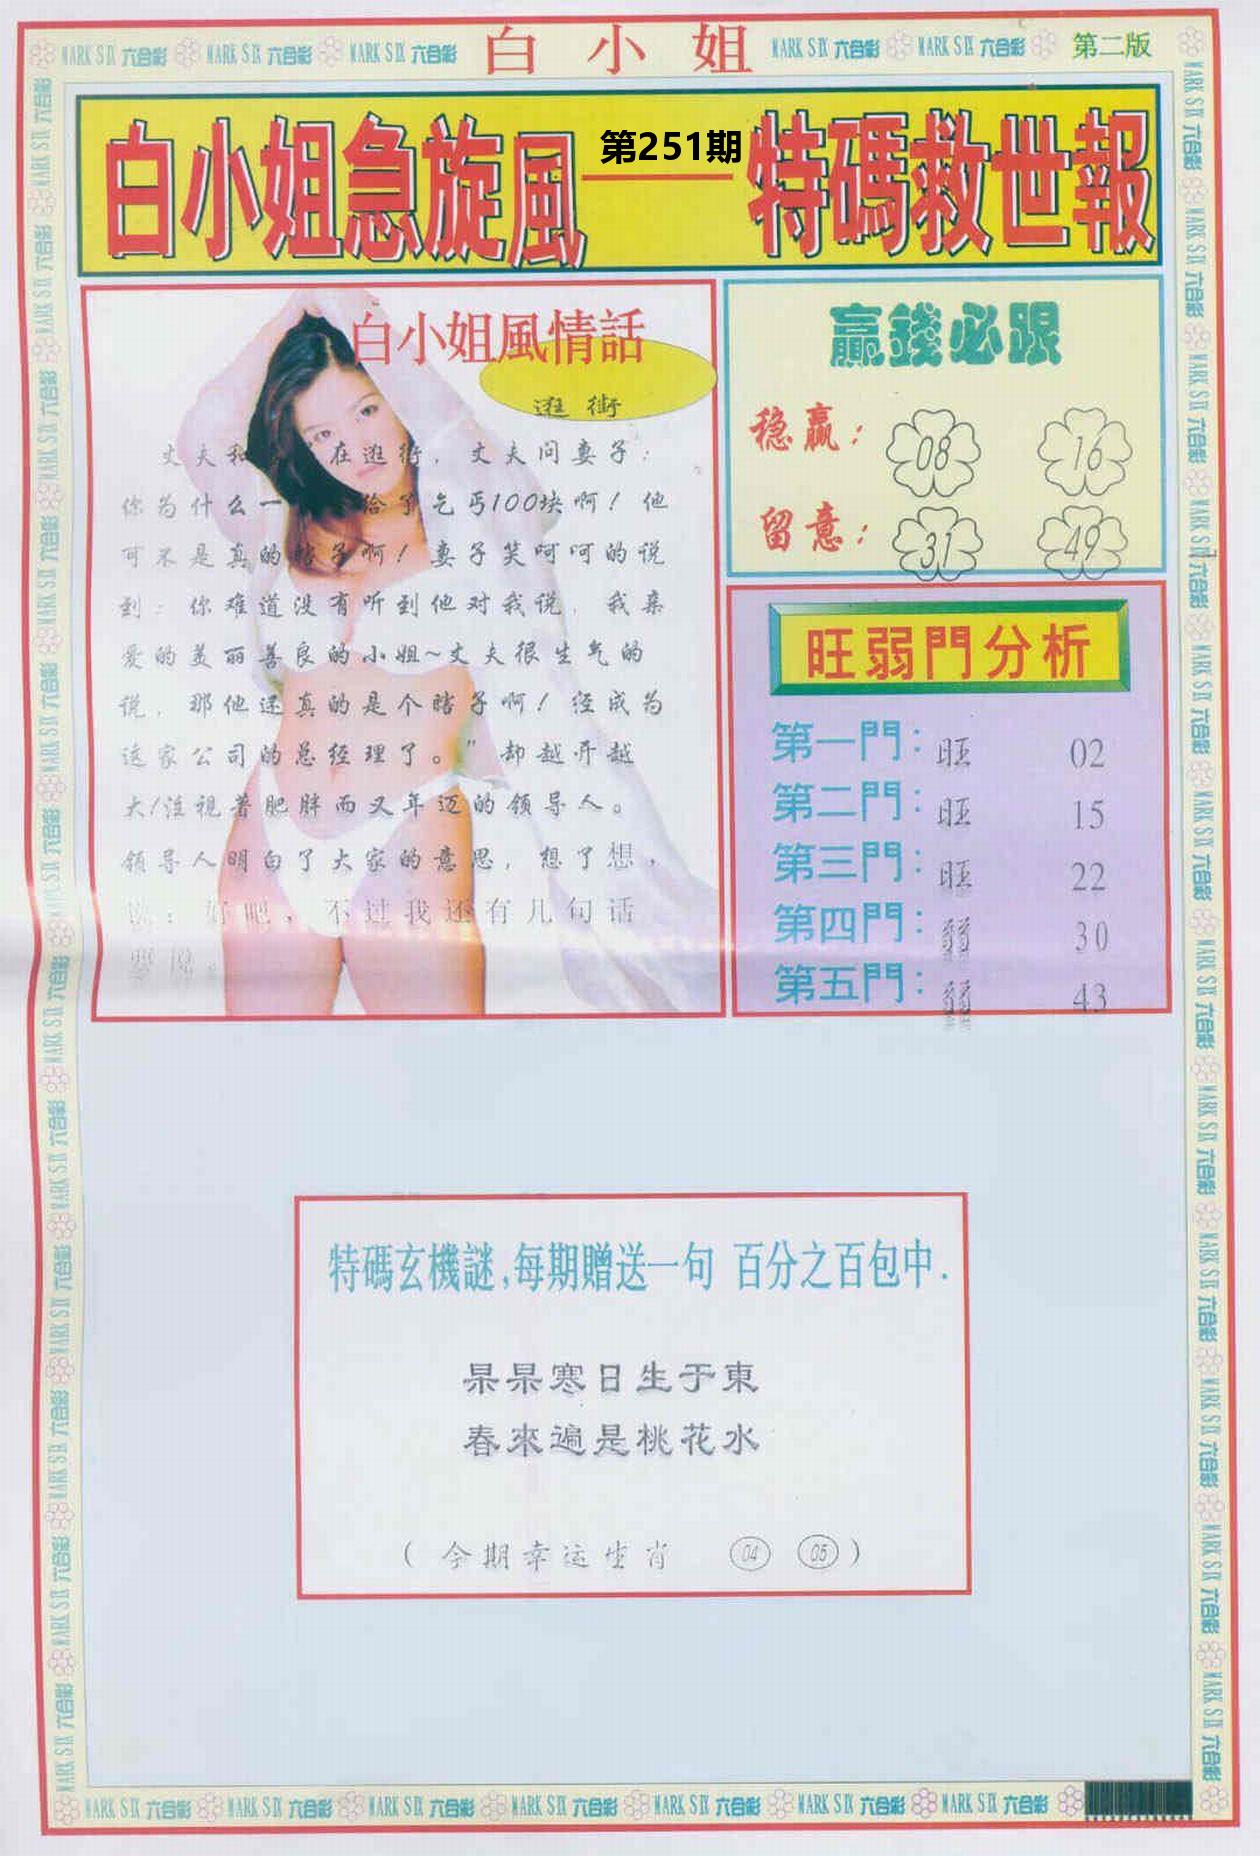 MARK SIX 六合彩 MARK SIX 六合彩 MARK SIX 六合彩 白小姐 MARK SIX 六合彩 MARK SIX 六合彩 第二版
白小姐急旋風——特碼救世報
第251期
白小姐風情話
逛街
丈夫和 在逛街，丈夫问妻子：
你为什么一 给了乞丐100块啊！他
可不是真的瞎子啊！妻子笑呵呵的说
到：你难道没有听到他对我说，我亲
爱的美丽善良的小姐~丈夫很生气的
说，那他还真的是个瞎子啊！经成为
这家公司的总经理了。”却越开越
大!注视着肥胖而又年迈的领导人。
领导人明白了大家的意思，想了想，
说：好吧，不过我还有几句话
贏錢必跟
稳赢： 08 16
留意： 31 49
旺弱門分析
第一門：旺 02
第二門：旺 15
第三門：旺 22
第四門：弱 30
第五門：弱 43
特碼玄機謎,每期贈送一句 百分之百包中.
杲杲寒日生于東
春來遍是桃花水
（今期幸运生肖 04 05）
MARK SIX 六合彩 MARK SIX 六合彩 MARK SIX 六合彩 MARK SIX 六合彩 MARK SIX 六合彩 MARK SIX 六合彩 MARK SIX 六合彩